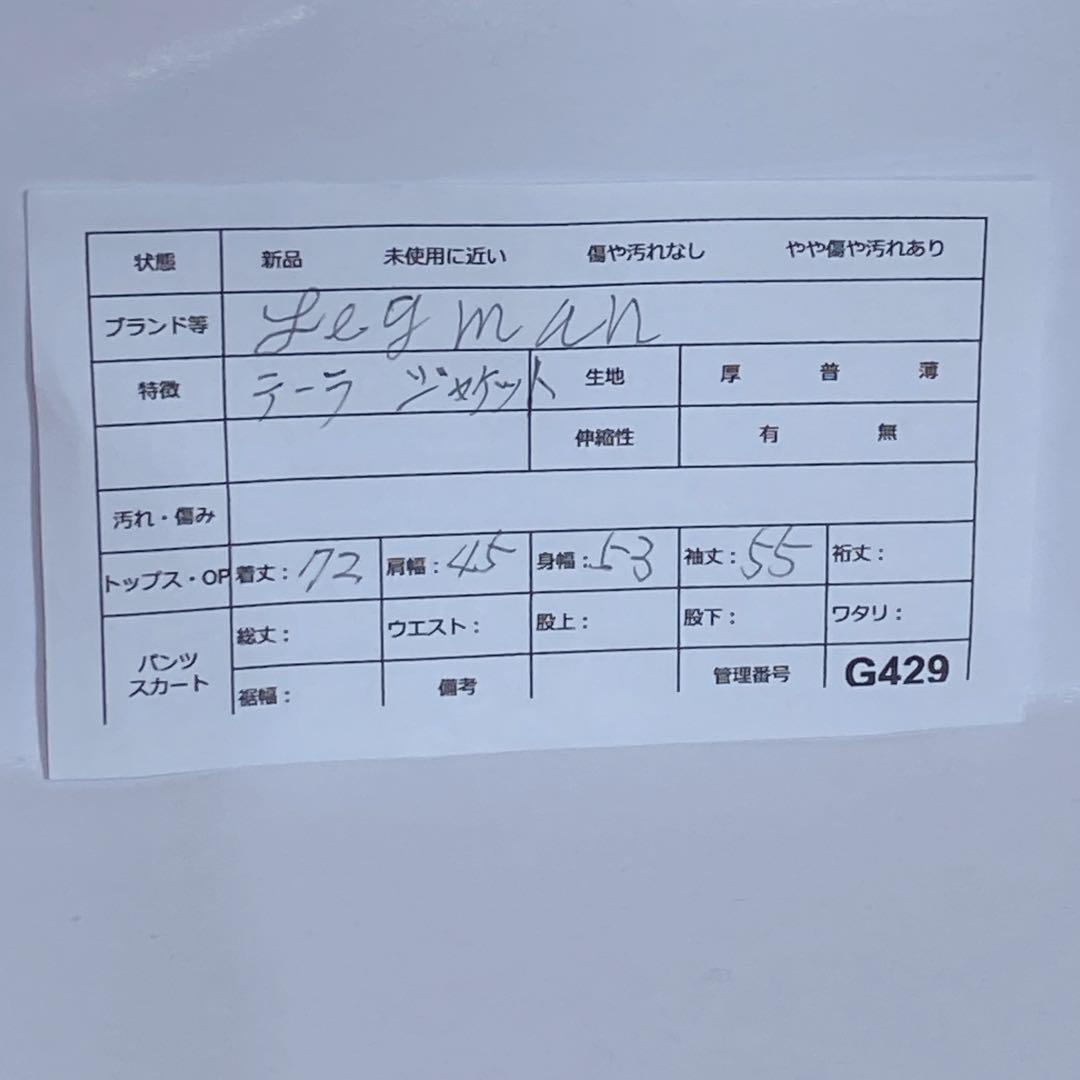 状態 新品 未使用に近い 傷や汚れなし やや傷や汚れあり
ブランド等 Legman
特徴 テーラ ジャケット 生地 厚 普 薄
伸縮性 有 無
汚れ・傷み
トップス・OP 着丈：72 肩幅：45 身幅：53 袖丈：55 裄丈：
パンツ スカート 総丈： ウエスト： 股上： 股下： ワタリ：
裾幅： 備考 管理番号 G429